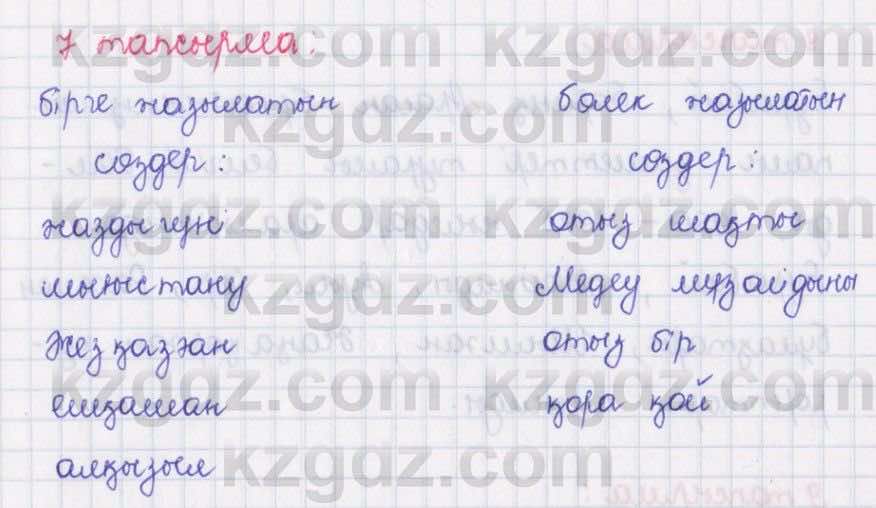 7 тапсырма:
бірге жазылатын
сөздер:
жаздыгүні
шығыстану
Жезқазған
ешқашан
алқызыл
бөлек жазылатын
сөздер:
отыз шақты
Медеу мұзайдыны
отыз бір
қора қой
kzgdz.com